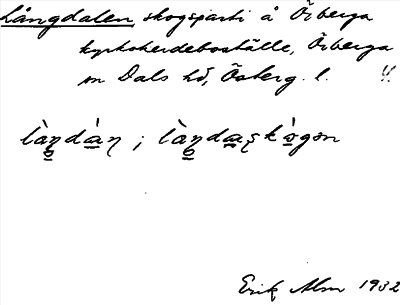 Långdalen, skogsparti å Örberga
kyrkoherdeboställe, Örberga
sn Dals hd, Österg. l. !!
là̱ŋdàn ; là̱ŋdaskògən
Erik Alm 1932